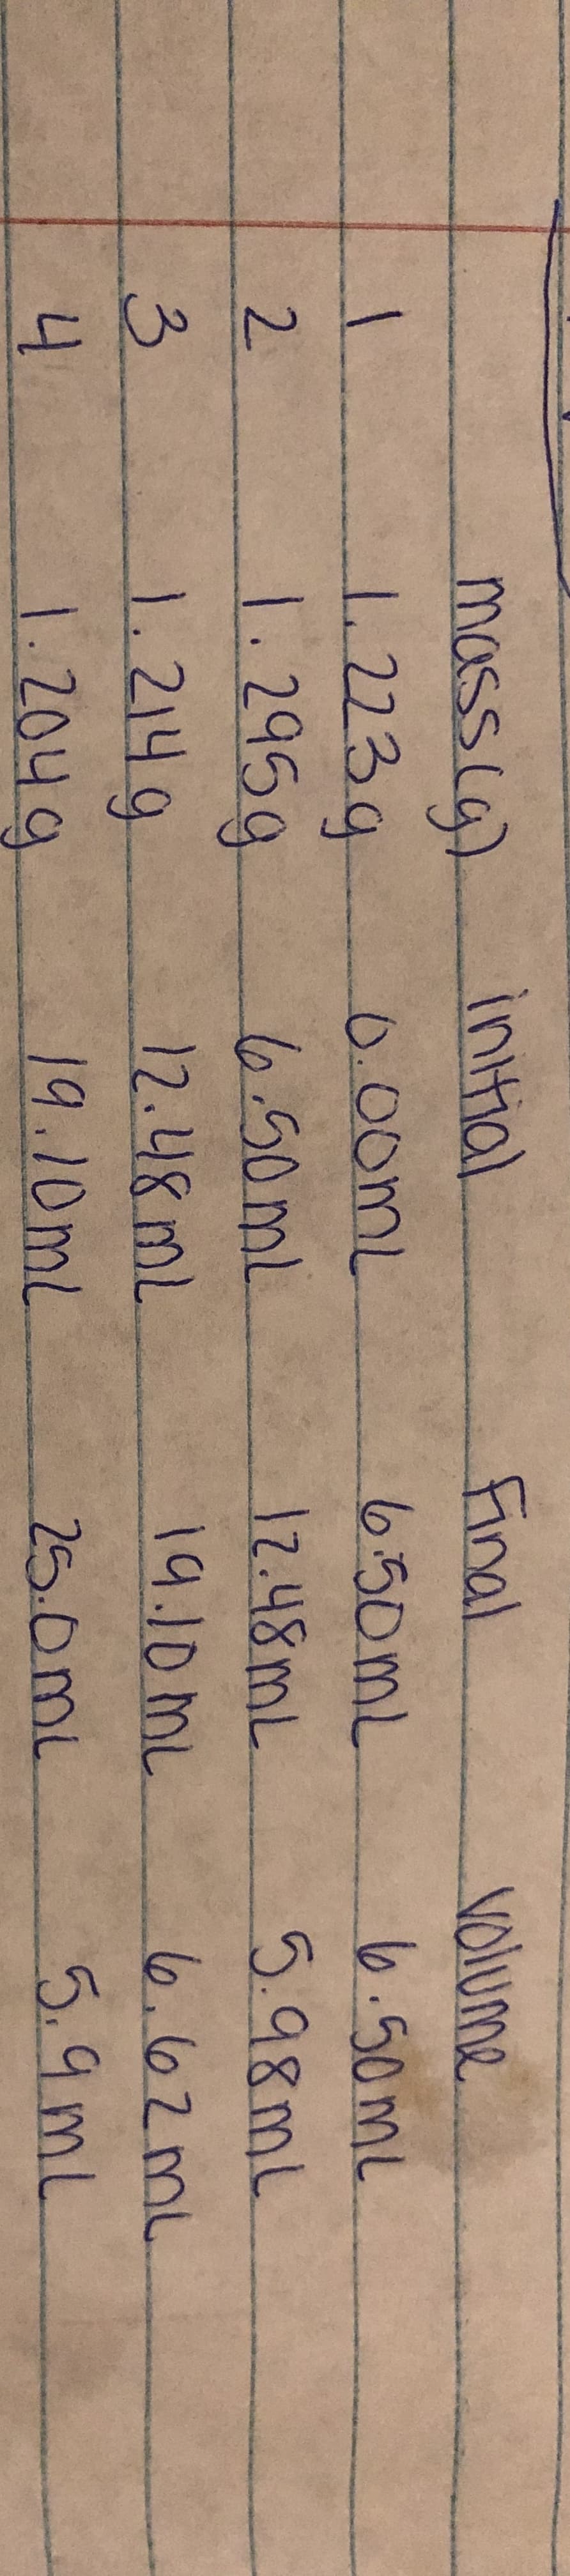 mass(g) initial Final Volume
1 1.223g 0.00mL 6.50mL 6.50mL
2 1.295g 6.50mL 12.48mL 5.98mL
3 1.214g 12.48mL 19.10mL 6.62mL
4 1.204g 19.10mL 25.0mL 5.9mL